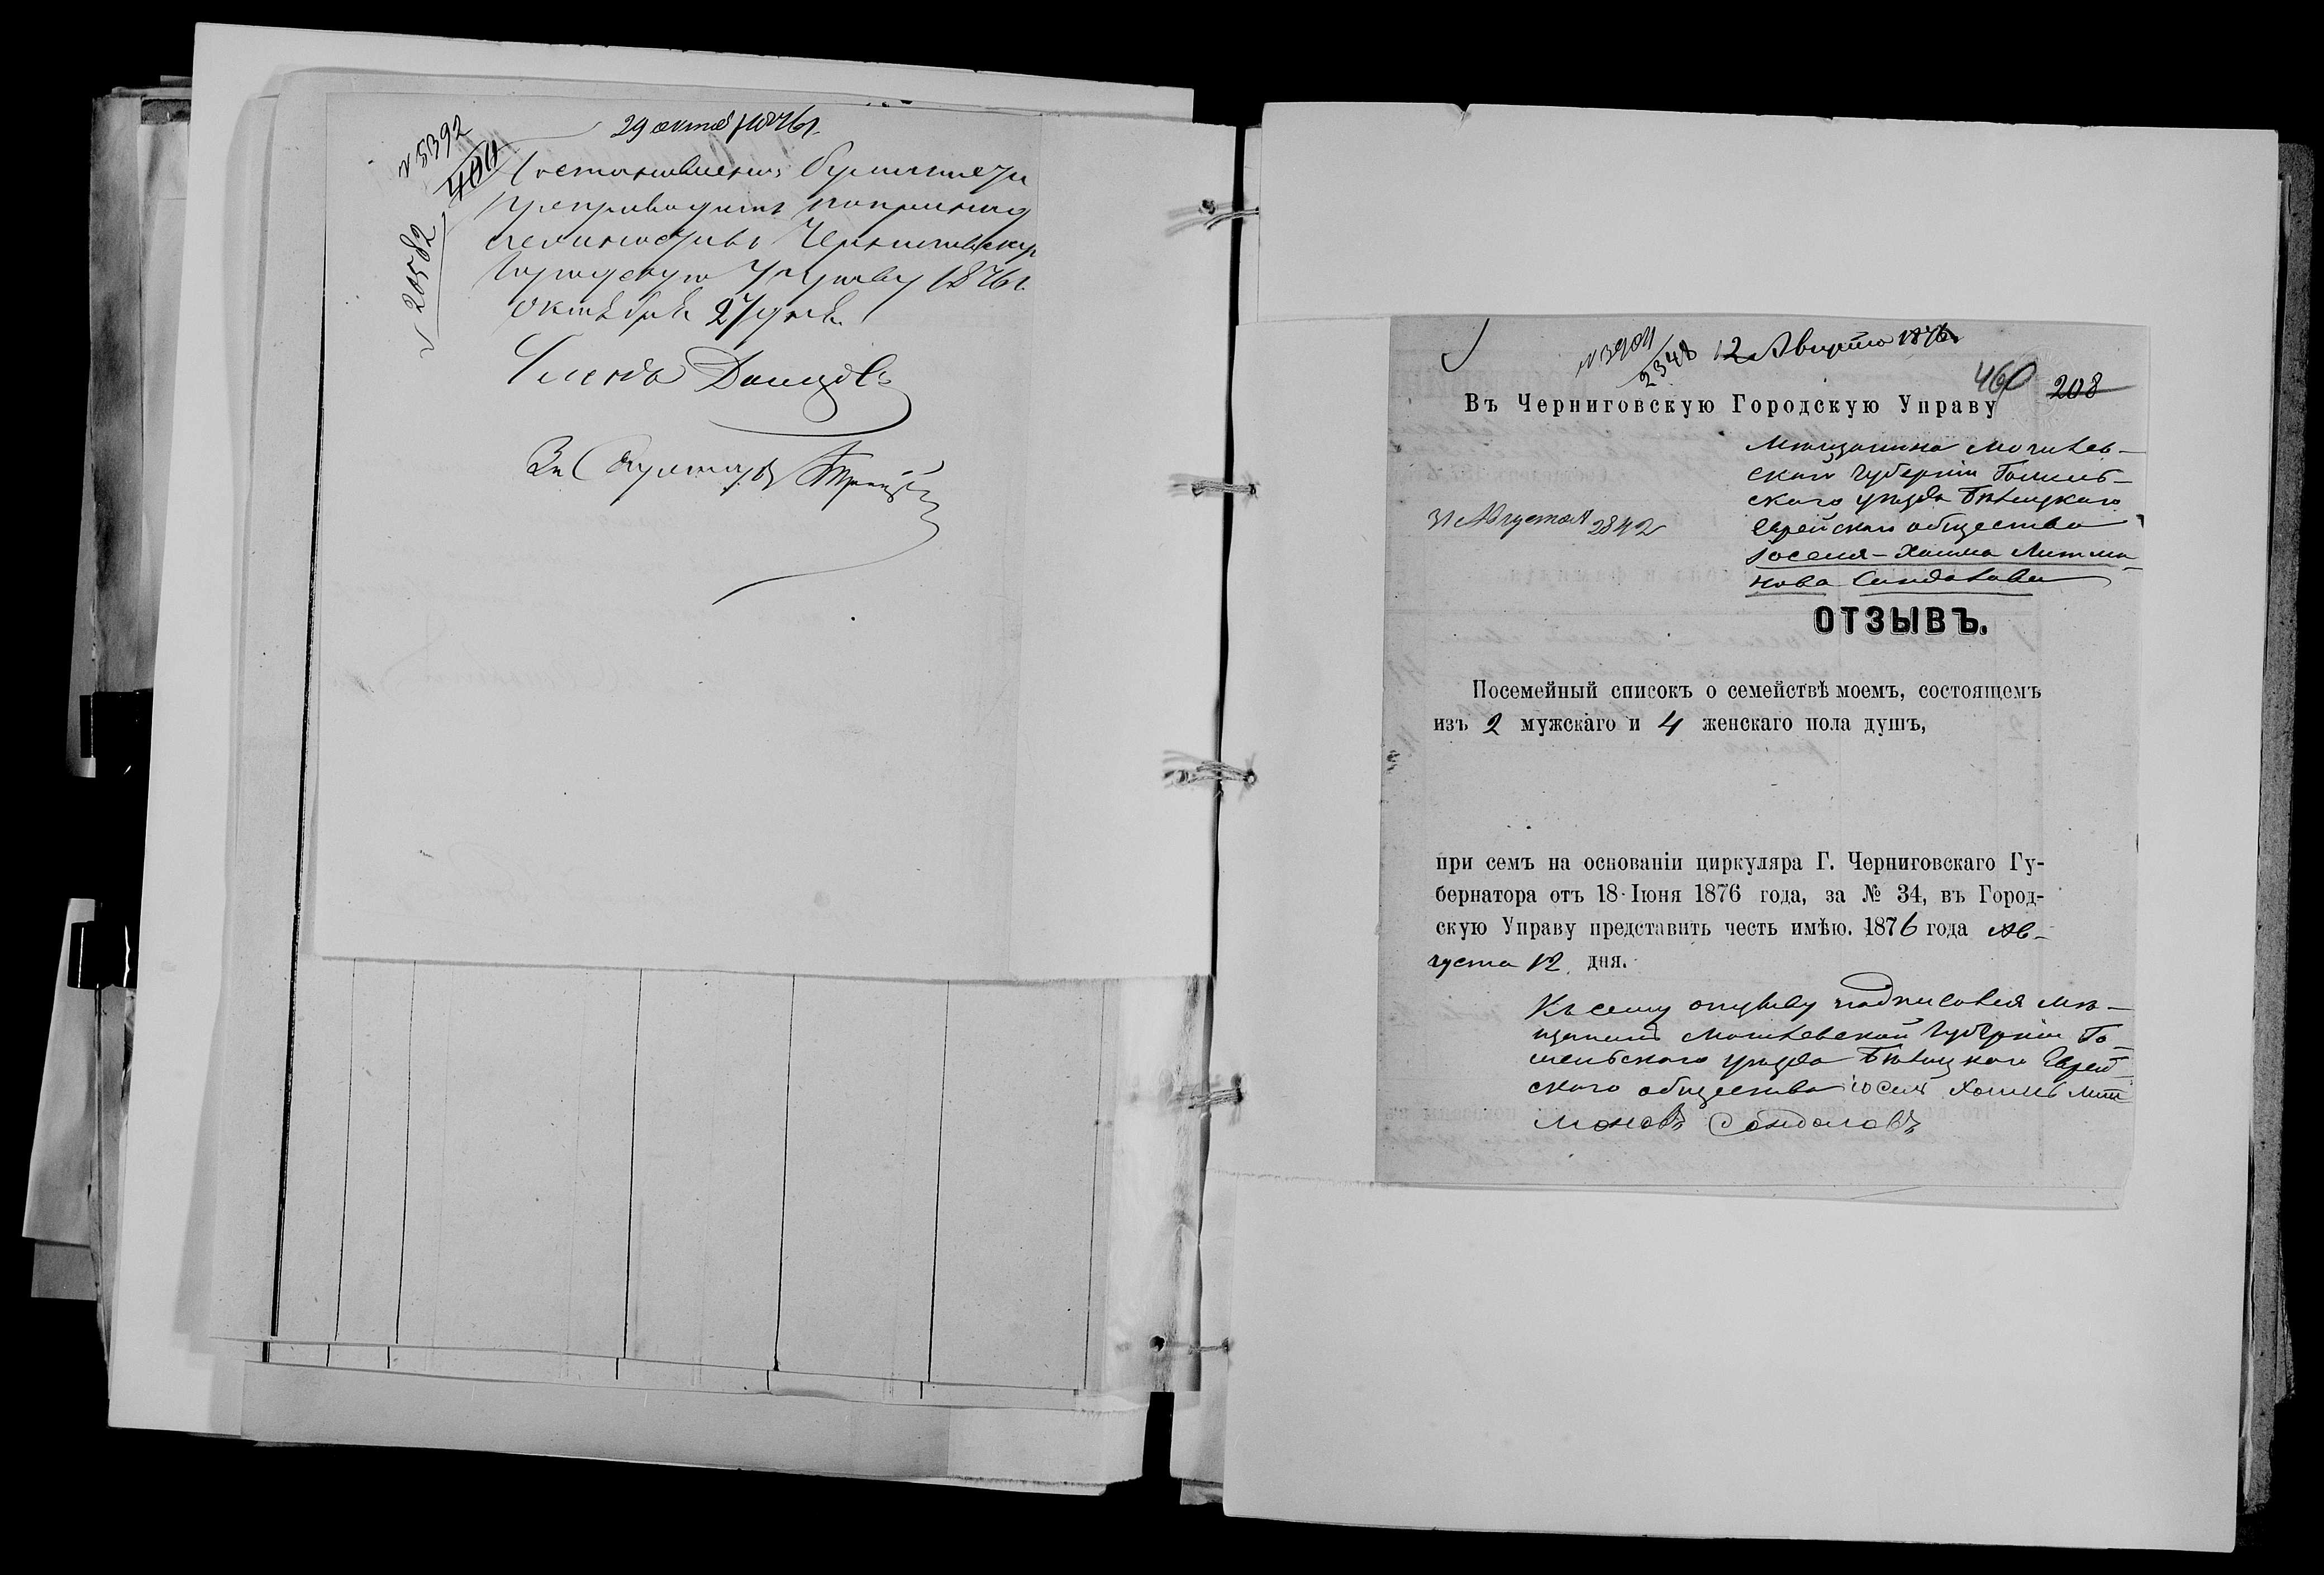 29 октяб 1876 г.
№ 5392
400
№ 20582
препроводить по принад
Черниговскую
Городскую Управу 1876 г.
октября 27 дня
Членъ
За Секретаря
№ 3904
2348
12 Августа 1876
460 208
Въ Черниговскую Городскую Управу
Мѣщанина Могилев-
ской Губерніи Гомель-
скаго уѣзда Бѣлицкаго
Еврейскаго общества
Іоселя-Хаима Литма-
нова Сандалова
31 Августа № 2842
ОТЗЫВЪ.
Посемейный списокъ о семействѣ моемъ, состоящемъ
изъ 2 мужскаго и 4 женскаго пола душъ,
при семъ на основаніи циркуляра Г. Черниговскаго Гу-
бернатора отъ 18 Іюня 1876 года, за № 34, въ Город-
скую Управу представить честь имѣю. 1876 года Ав-
густа 12 дня.
Къ сему отзыву подписался мѣ-
щанинъ Могилевской Губерніи Го-
мельскаго уѣзда Бѣлицкаго Еврей-
скаго общества Іосель Хаимъ Лит-
мановъ Сандаловъ